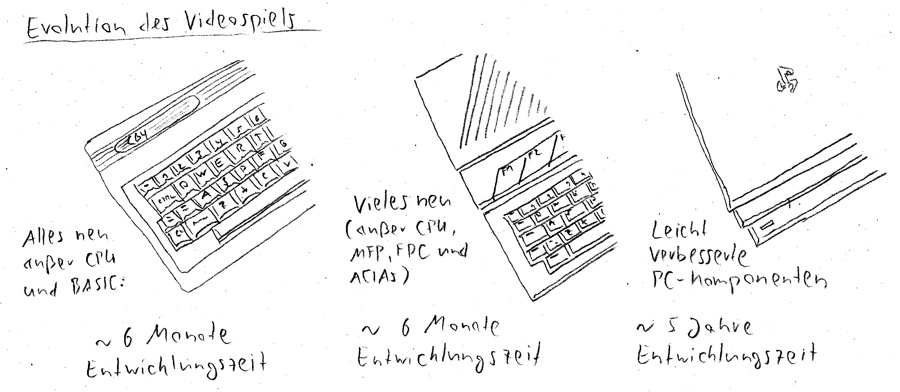 Evolution des Videospiels
C64
Alles neu
außer CPU
und BASIC:
~ 6 Monate
Entwicklungszeit
F1 F2
Vieles neu
(außer CPU,
MFP, FDC und
ACIAs)
~ 6 Monate
Entwicklungszeit
Leicht
verbesserte
PC-Komponenten
~ 5 Jahre
Entwicklungszeit